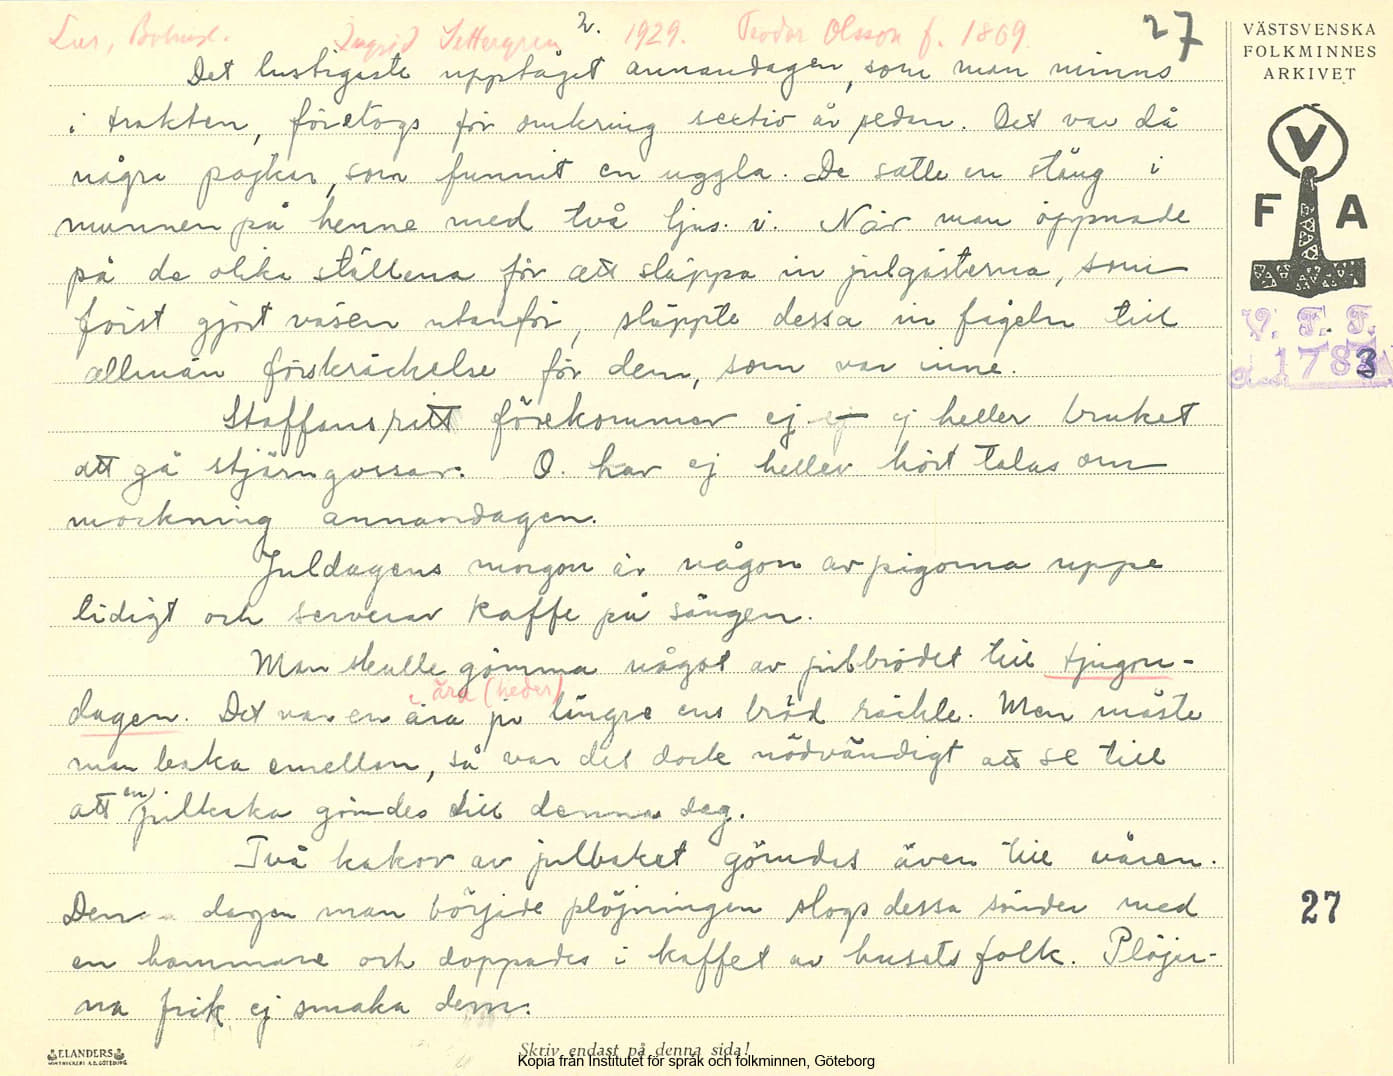 Lur, Bohusl. Ingrid Settergren 2. 1929. Teodor Olsson f. 1869. 27
Det lustigaste upptåget annandagen, som man minns
i trakten, företogs för omkring sextio år sedan. Det var då
några pojkar, som funnit en uggla. De satte en stång i
munnen på henne med två ljus i. När man öppnade
på de olika ställena för att släppa in julgästerna, som
först gjort väsen utanför, släppte dessa in fågeln till
allmän förskräckelse för dem, som var inne.
Staffansritt förekommer ej ej ej heller bruket
att gå stjärngossar. O. har ej heller hört talas om
mockning annandagen.
Juldagens morgon är någon av pigorna uppe
tidigt och serverar kaffe på sängen.
Man skulle gömma något av julbrödet till tjugon-
i ära (heder)
dagen. Det var en ära ju längre ens bröd räckte. Men måste
man baka emellan, så var det dock nödvändigt att se till
att en julkaka gömdes till denna dag.
Två kakor av julbaket gömdes även till våren.
Den dagen man började plöjningen slogs dessa sönder med
en hammare och doppades i kaffet av husets folk. Plöjar-
na fick ej smaka dem.
Skriv endast på denna sida!
Kopia från Institutet för språk och folkminnen, Göteborg
ELANDERS
VÄSTSVENSKA
FOLKMINNES
ARKIVET
V
F A
V. F. F.
1783
27